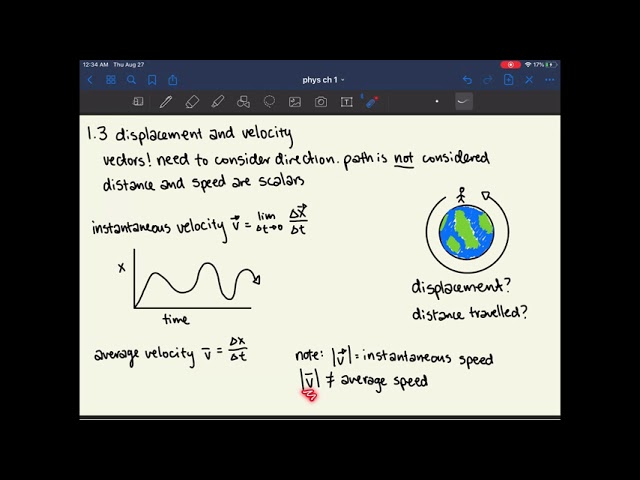 12:34 AM Thu Aug 27
17%
phys ch 1
1.3 displacement and velocity
vectors! need to consider direction. path is not considered
distance and speed are scalars
instantaneous velocity v⃗ = lim Δt→0 Δx⃗/Δt
x
time
displacement?
distance travelled?
average velocity v̄ = Δx/Δt
note: |v⃗| = instantaneous speed
|v̄| ≠ average speed